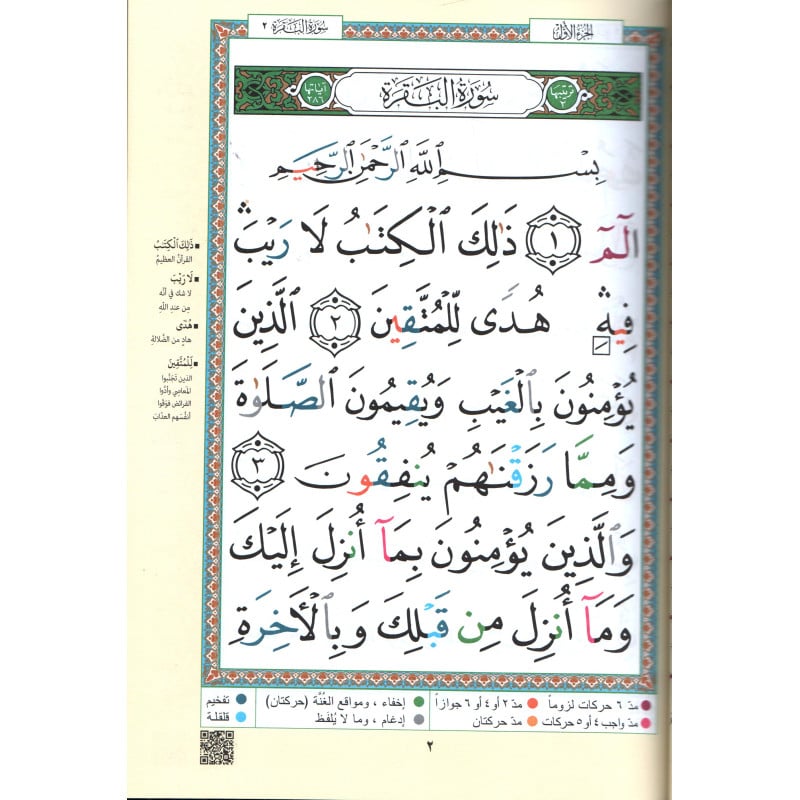 الجزء الأول
سورة البقرة ٢
ترتيبها ٢
سورة البقرة
آياتها ٢٨٦
بِسْمِ ٱللَّهِ ٱلرَّحْمَٰنِ ٱلرَّحِيمِ
الٓمٓ ١ ذَٰلِكَ ٱلْكِتَٰبُ لَا رَيْبَۛ
فِيهِۛ هُدًى لِّلْمُتَّقِينَ ٢ ٱلَّذِينَ
يُؤْمِنُونَ بِٱلْغَيْبِ وَيُقِيمُونَ ٱلصَّلَوٰةَ
وَمِمَّا رَزَقْنَٰهُمْ يُنفِقُونَ ٣
وَٱلَّذِينَ يُؤْمِنُونَ بِمَآ أُنزِلَ إِلَيْكَ
وَمَآ أُنزِلَ مِن قَبْلِكَ وَبِٱلْأَخِرَةِ
ذَٰلِكَ ٱلْكِتَٰبُ
القرآن العظيم
لَا رَيْبَ
لا شك في أنَّه
من عند الله
هُدًى
هادٍ من الضَّلالة
لِّلْمُتَّقِينَ
الذين تجنَّبوا
المعاصي وأدَّوا
الفرائض فوَقَوا
أنفُسَهم العذابَ
مدّ ٦ حركات لزوماً مدّ ٢ أو ٤ أو ٦ جوازاً إخفاء ، ومواقع الغُنَّة (حركتان) تفخيم
مدّ واجب ٤ أو ٥ حركات مدّ حركتان إدغام ، وما لا يُلفَظ قلقلة
٢